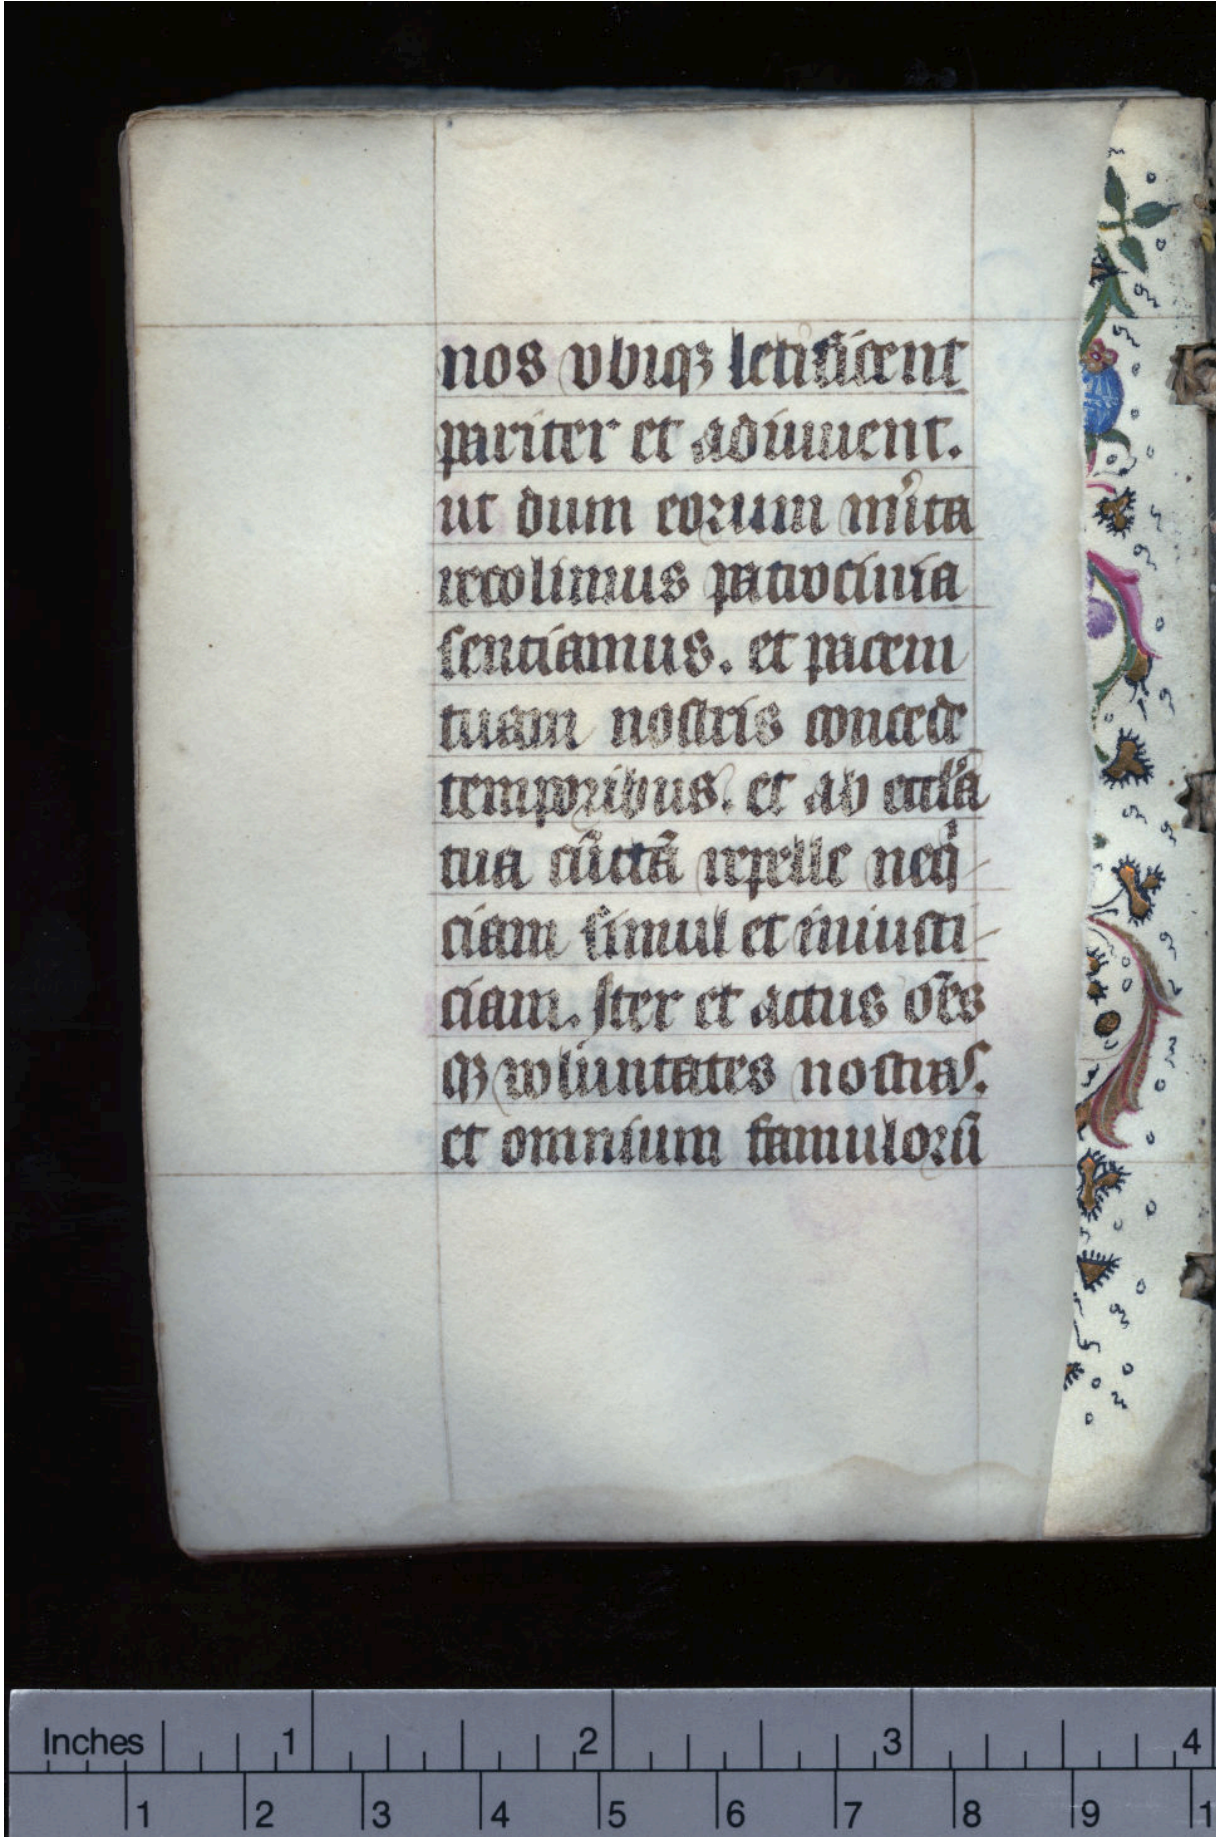 nos vbiqꝫ letificent
pariter et adiuuent.
ut dum eorum mͥita
recolimus patrocinia
sentiamus. et pacem
tuam nostris concede
temporibus. et ab eccl̓ia
tua cūctā repelle neqͥ-
ciam simul et iniusti-
ciam. Iter et actus oēs
qꝫ voluntates nostras.
et omnium famulorū
Inches 1 2 3 4
1 2 3 4 5 6 7 8 9 1